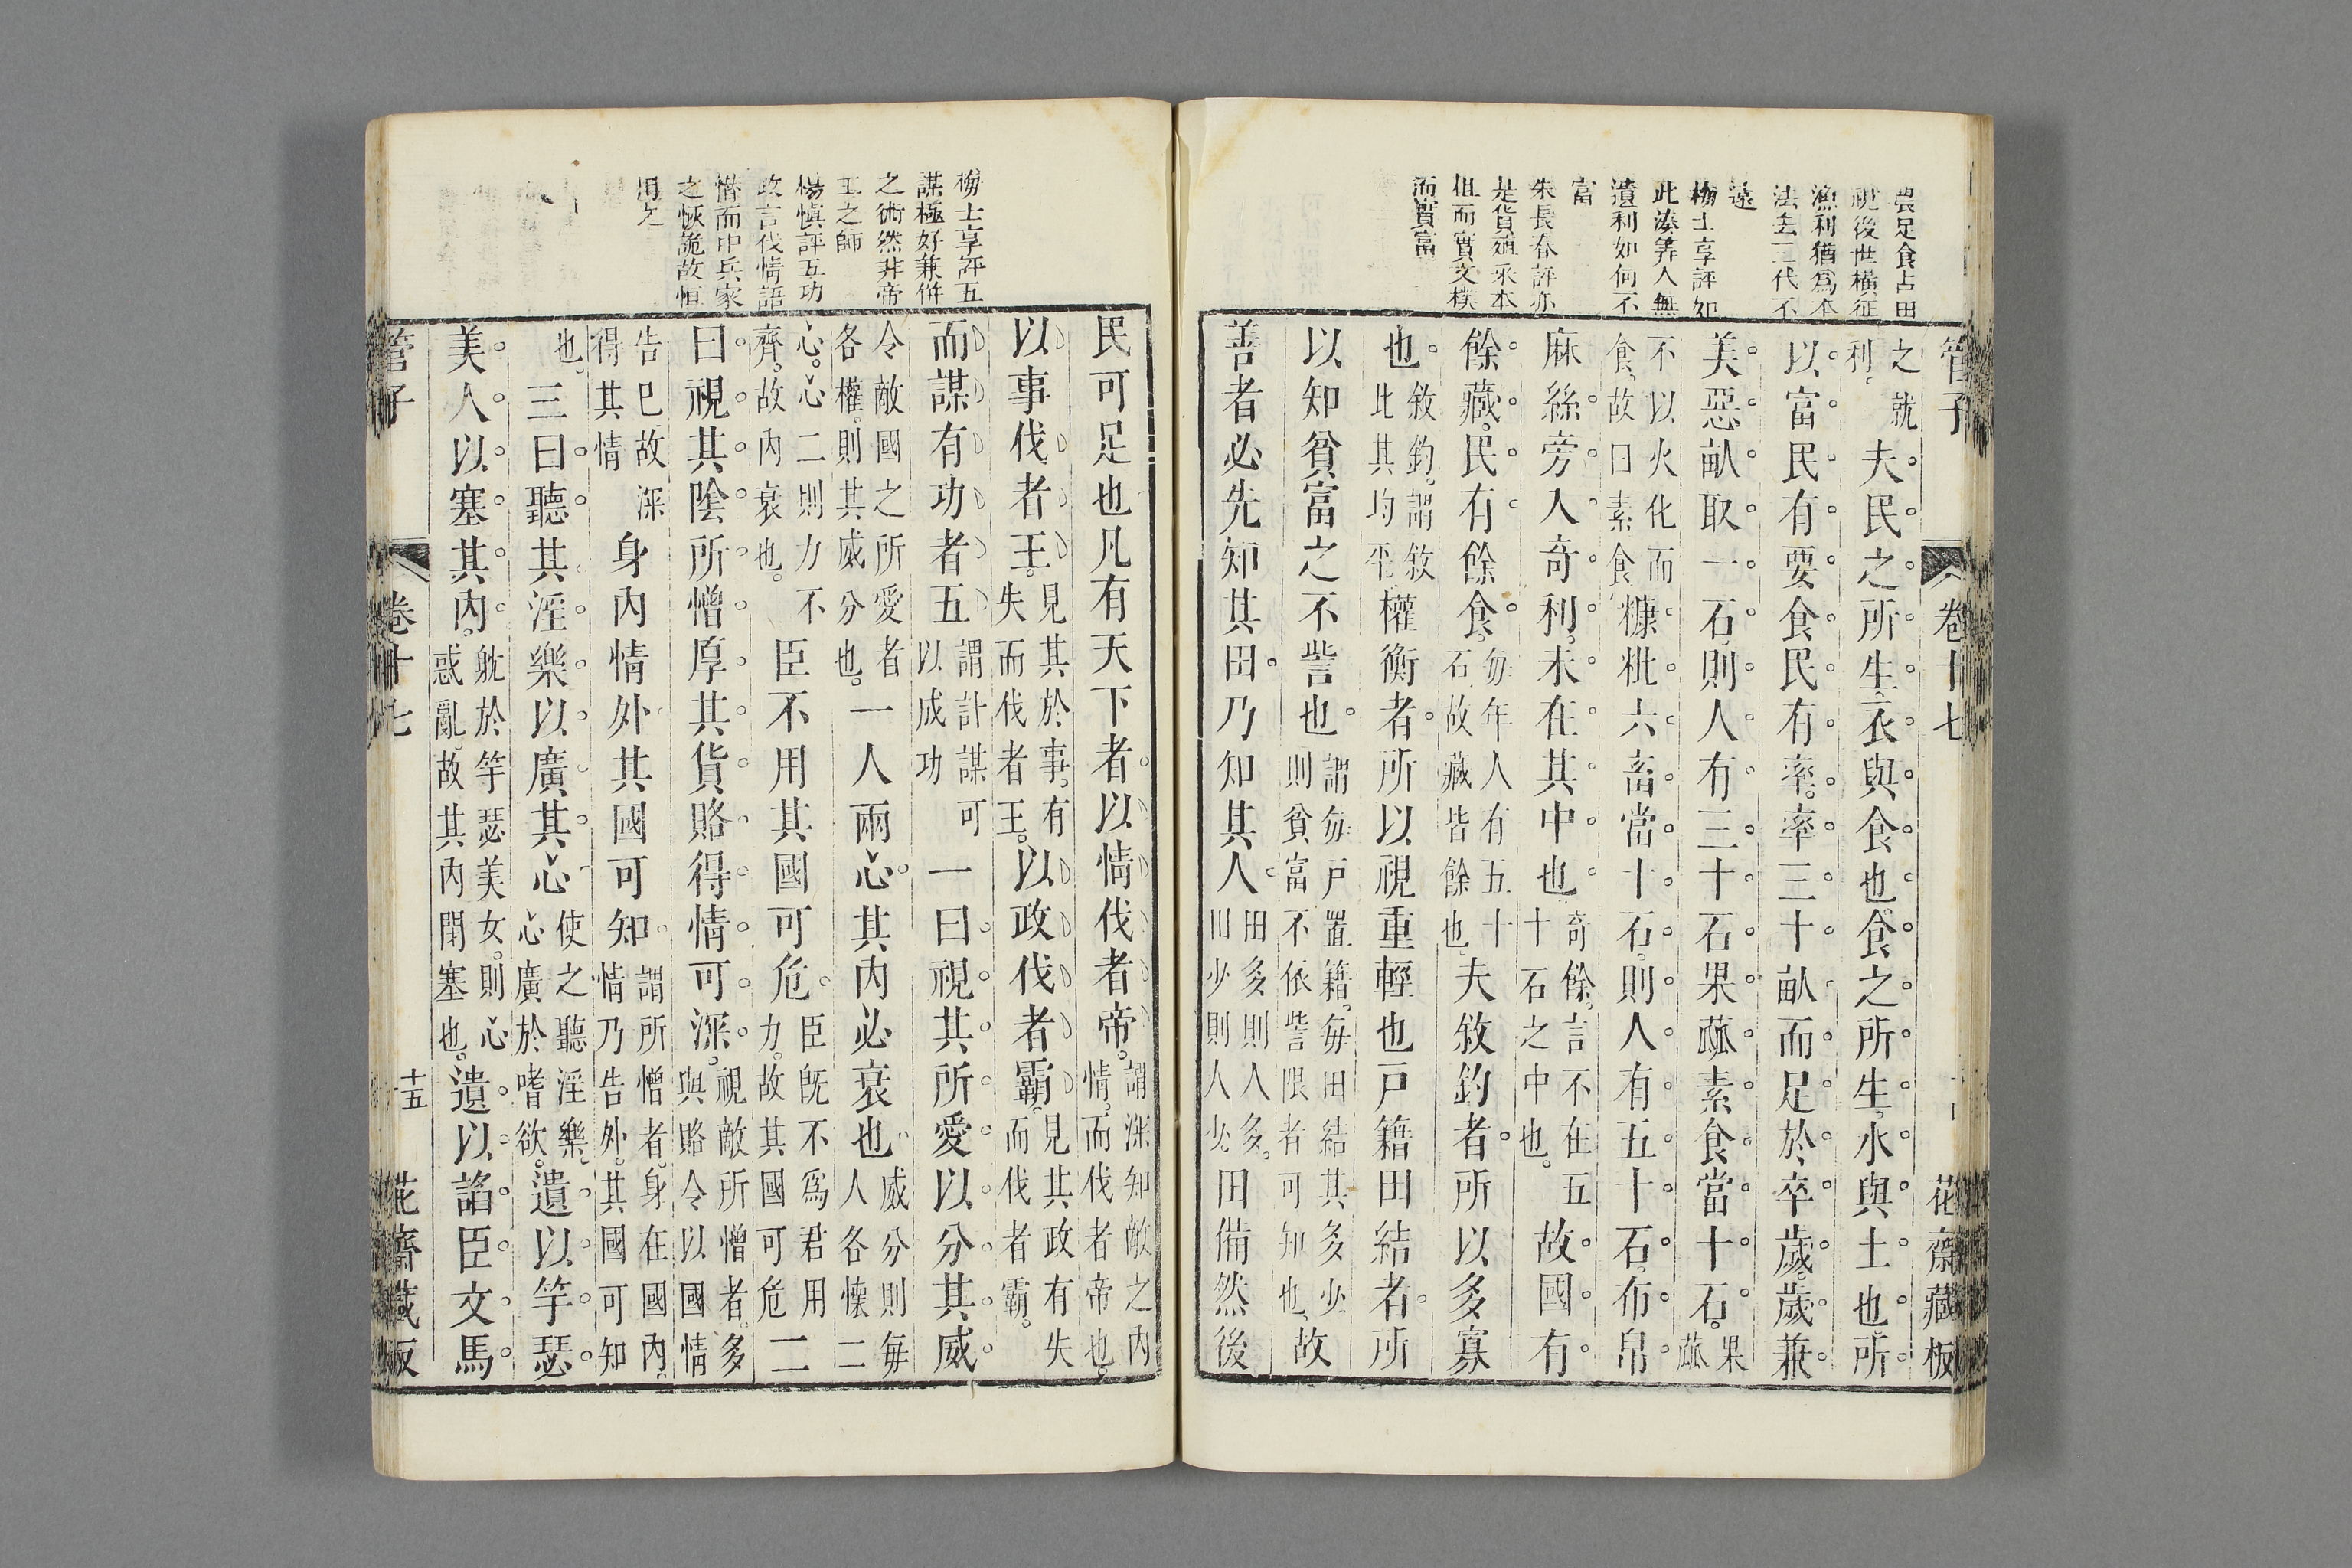 管子 卷十七 花齋藏板
農足食占田
視後世橫征
漁利猶爲本
法去三代不
遠
梅士享評如
此湊筭人無
遺利如何不
富
朱長春評亦
是貨殖來本
但而實文樸
而實富
之就利。夫民之所生。衣與食也食之所生。水與土也所
以富民有要食民有率。率三十畝而足於卒歲。歲兼
美惡畝取一石。則人有三十石果蓏素食當十石。果蓏
不以火化而食。故曰素食糠粃六畜當十石。則人有五十石。布帛
麻絲旁入奇利。未在其中也奇餘。言不在五十石之中也。故國有
餘藏。民有餘食。每年人有五十石故藏皆餘也。夫敘鈞者所以多寡
也敘鈞。謂敘比其均平權衡者所以視重輕也戶籍田結者所
以知貧富之不訾也謂每戶置籍。每田結其多少則貧富不依訾限者可知也。故
善者必先知其田乃知其人田多則人多。田少則人少田備然後
梅士享評五
謀極好兼併
之術然非帝
王之師
楊愼評五功
政言伐情語
憯而中兵家
之恢詭故恒
用之
民可足也凡有天下者以情伐者帝。謂深知敵之內情。而伐者帝也。
以事伐者王。見其於事。有失而伐者王。以政伐者霸。見其政有失而伐者霸。
而謀有功者五謂計謀可以成功一曰視其所愛以分其威
令敵國之所愛者各權。則其威分也。一人兩心其內必衰也威分則每人各懷二
心。心二則力不齊。故內衰也。臣不用其國可危臣旣不爲君用力。故其國可危二
曰視其陰所憎厚其貨賂得情可深。視敵所憎者。多與賂令以國情
告已故深得其情身內情外其國可知謂所憎者。身在國內。情乃告外。其國可知
也。三曰聽其淫樂以廣其心使之聽淫樂。心廣於嗜欲。遺以竽瑟
美人以塞其內。躭於竽瑟美女。則心惑亂。故其內閉塞也。遺以諂臣文馬
管子 卷十七 十五 花齋藏板